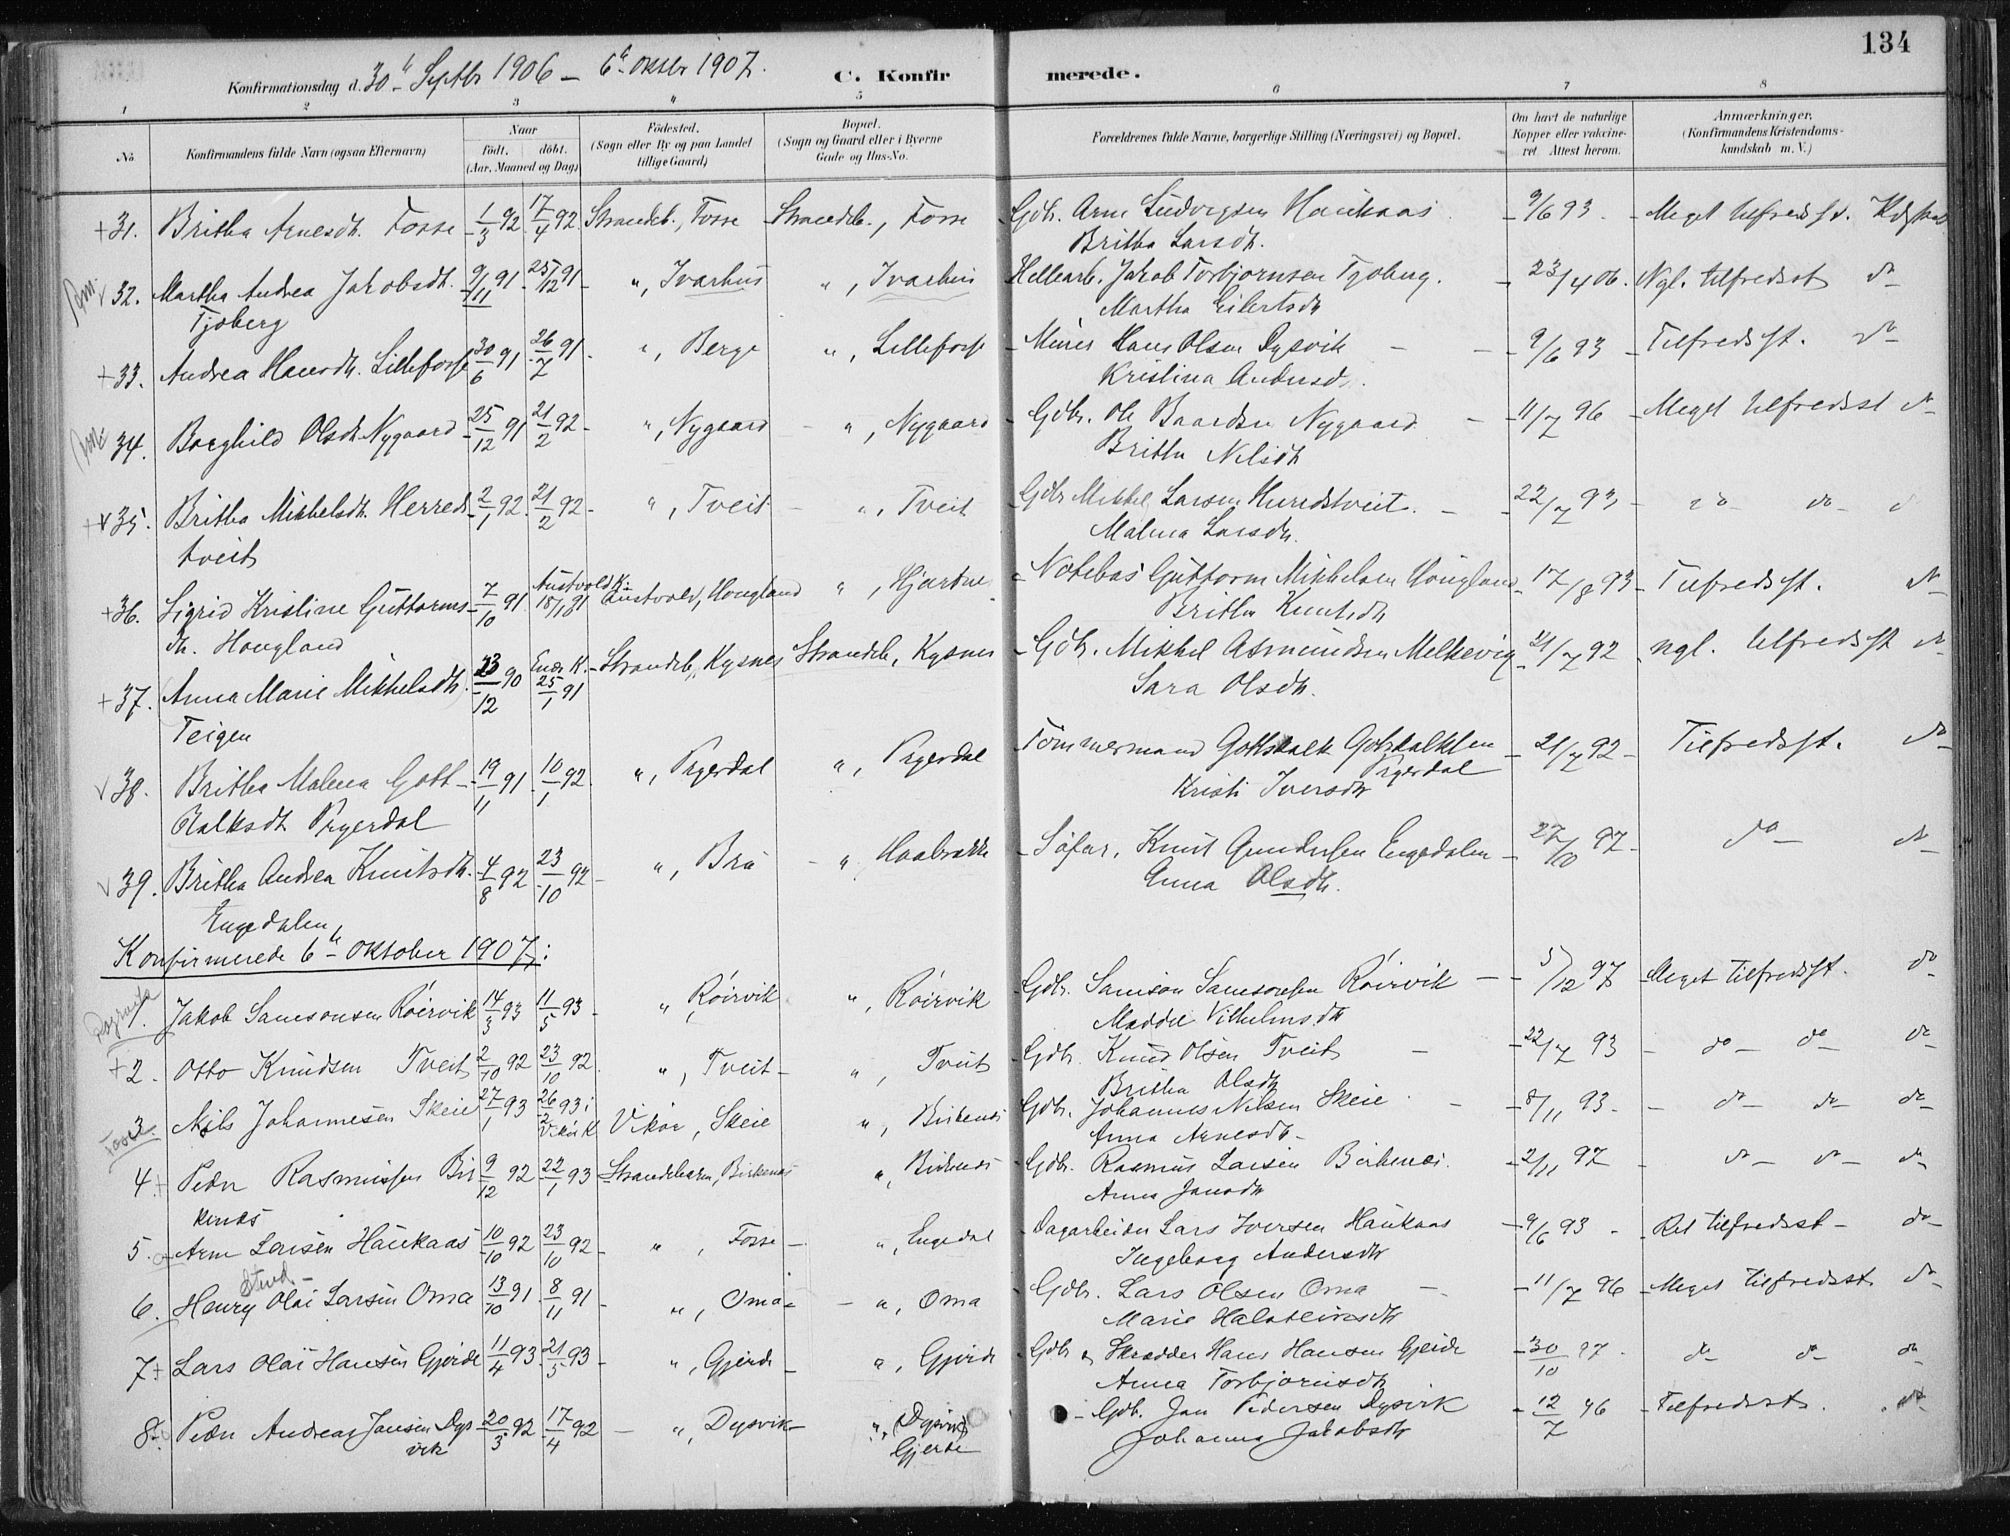 134
Konfirmationsdag d. 30te Septbr 1906 - 6te oktbr 1907.
C. Konfirmerede.
1 2 3 " 5 6 7 8
No
Konfirmandens fulde Navn (ogsaa Efternavn)
Naar
födt. döbt.
(Aar, Maaned og Dag)
Födested.
(Sogn eller By og paa Landet
tillige Gaard)
Bopæl.
(Sogn og Gaard eller i Byerne
Gade og Hus-No.
Forældrenes fulde Navne, borgerlige Stilling (Næringsvei) og Bopæl.
Om havt de naturlige
Kopper eller vakcine-
ret. Attest herom.
Anmærkninger.
(Konfirmandens Kristendoms-
kundskab m. V.)
+31. Britha Arnesdt. Fosse 1/3 92 17/4 92 Strandeb., Fosse Strandeb., Fosse Gdbr. Arne Ludvigsen Haukaas - 9/6 93 - Meget tilfredsst.
Britha Larsdt.
32. Martha Andrea Jakobsdt. 9/11 91 25/12 91 - ", Ivarhus ", Ivarhus Jakob Torbjornsen Tjoberg. - 23/4 06. Ngl. tilfredsst do
Tjoberg
Martha Eilertsdt
+33. Andrea Hansdt. Lillefosse 30/6 91 26/7 91 - ", Berge ", Lillefosse - Minér Hans Olsen Dysvik - 9/6 93 - Tilfredsst. do
Kristina Andersd.
34. Borghild Olsdt Nygaard 25/12 91 21/2 92 - ", Nygaard - ", Nygaard - Gdbr. Ole Baardsen Nygaard - 11/7 96 - Meget tilfredsst do
Britha Nilsdt
35. Britha Mikkelsdt. Herreds 2/1 92 21/2 92 - ", Tveit - ", Tveit Gdbr Mikkel Larsen Herredstveit. - 22/7 93 - do do
tveit
Malena Larsdt.
+36. Sigrid Kristine Guttorms- 7/10 91 Austvold K. 18/ 91 Austvold, Hougland ", Hjartnes Notebas Guttorm Mikkelsen Hougland - 17/8 93 - Tilfredsst. do
dt. Hougland
Britha Knutsdt
+37. Anna Marie Mikkelsdt. 23/12 90 Enæs K. 25/1 91 - Strandeb., Kysnes Strandeb., Kysnes - Gdbr. Mikkel Asmundsen Melkevig - 21/7 92 ngl. tilfredsst do
Teigen
Sara Olsdt.
38. Britha Malena Gott- 19/11 91 10/1 92 ", Prgerdal ", Prgerdal Tömmermand Gottskalk Gotskalksen - 21/7 92 - Tilfredsst. do
skalksdt Prgerdal
Prgerdal
Kristi Iversdt
39. Britha Andrea Knutsdt. 4/8 92 23/10 92 - ", Bru - ", Haabrekke - Söfar. Knut Gundersen Engedalen - 27/10 97 - do do
Engedalen
Anna Olsdt.
Konfirmerede 6te oktober 1907:
1. Jakob Samsonsen Röirvik 14/3 93 11/5 93 - ", Röirvik ", Röirvik Gdbr. Samson Samsonsen Röirvik - 5/12 97 - Meget tilfredsst. do
Maddel Vilhelmsdt
+2. Otto Knudsen Tveit 2/10 92 23/10 92 ", Tveit - ", Tveit - Gdbr. Knud Olsen Tveit - 22/7 93 - do do do
Britha Olsdt
3. Nils Johannesen Skeie 27/1 93 26/2 93 i Vikör K Vikör, Skeie ", Birkenes Gdbr. Johannes Nilsen Skeie - 8/11 93 - do do do
Anna Arnesdt -
4.+ Peder Rasmussen Bir 9/12 92 22/1 93 Strandebarm, Birkenæs ", Birkenes Gdbr. Rasmus Larsen Birkenæs. - 2/11 97 - do do do
kenæs
Anna Jansdt
5. Arne Larsen Haukaas 10/10 92 23/10 92 - ", Fosse - ", Engedal Dagarbeider Lars Iversen Haukaas - 9/6 93 - Ret tilfredsst - do
Ingeborg Andersdt
Stud -
6. Henry Olai Larsen Oma 13/10 91 8/11 91 - ", Oma - - ", Oma Gdbr. Lars Olsen Oma - 11/7 96 - Meget tilfredsst. do
Marie Halsteinsdt
7+ Lars Olai Hansen Gjerde 11/4 93 21/5 93 - ", Gjerde - ", Gjerde Gdbr & Skrædder Hans Hansen Gjerde - 30/10 97 - do do do
Anna Torbjornsdt
8. Peder Andreas Jansen Dys 20/3 92 17/4 92 - ", Dysvik - ", (Dysvik) - Gdb. Jan Pedersen Dysvik - 12/7 96 - Tilfredsst. do
vik
Gjerde
Johanna Jakobsdt